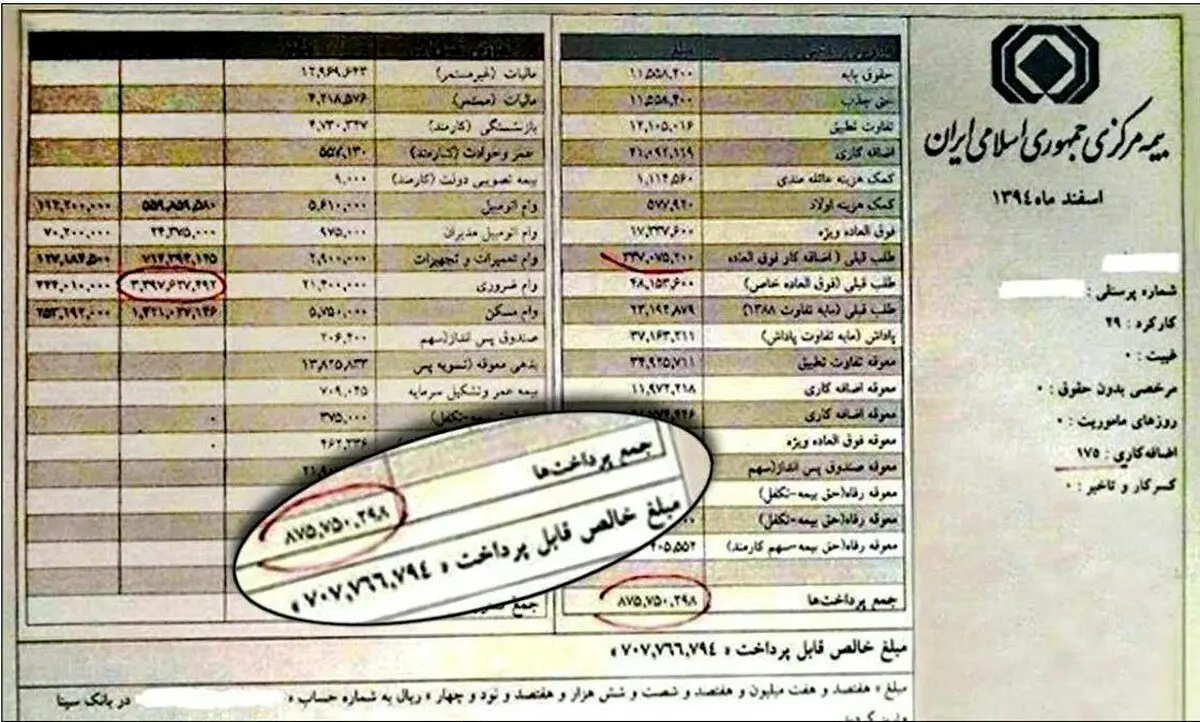 بیمه مرکزی جمهوری اسلامی ایران
اسفند ماه ۱۳۹۴
شماره پرسنلی :
کارکرد : ۲۹
غیبت : ۰
مرخصی بدون حقوق : ۰
روزهای ماموریت : ۰
اضافه‌کاری : ۱۷۵
کسرکار و تاخیر : ۰
حقوق پایه ۱۱,۵۵۸,۴۰۰
حق جذب ۱۱,۵۵۸,۴۰۰
تفاوت تطبیق ۱۲,۱۰۵,۰۱۶
اضافه کاری ۲۱,۰۹۲,۱۶۹
کمک هزینه عائله مندی ۱,۱۱۴,۵۶۰
کمک هزینه اولاد ۵۷۷,۹۲۰
فوق العاده ویژه ۱۷,۳۳۷,۶۰۰
طلب قبلی ( اضافه کار فوق العاده ۳۳۷,۰۷۵,۲۰۰
طلب قبلی (فوق العاده خاص) ۴۸,۱۵۳,۶۰۰
طلب قبلی (مابه تفاوت ۱۳۸۸) ۲۳,۱۹۲,۸۷۹
پاداش (مابه تفاوت پاداش) ۳۷,۱۶۳,۲۱۱
معوقه تفاوت تطبیق ۳۴,۹۲۵,۷۱۱
معوقه اضافه کاری ۱۱,۹۷۲,۲۱۸
معوقه اضافه کاری
معوقه فوق العاده ویژه
معوقه صندوق پس انداز(سهم
معوقه رفاه(حق بیمه-تکفل)
معوقه رفاه(حق بیمه-تکفل)
معوقه رفاه(حق بیمه-سهم کارمند) ۴۰۵,۵۵۲
جمع پرداخت‌ها ۸۷۵,۷۵۰,۲۹۸
مالیات (غیرمستمر) ۱۲,۹۶۹,۶۴۳
مالیات (مستمر) ۴,۲۱۸,۵۷۶
بازنشستگی (کارمند) ۴,۷۳۰,۳۴۷
عمر وحوادث (کارمند) ۵۵۷,۱۳۰
بیمه تصویبی دولت (کارمند) ۹,۰۰۰
وام اتومبیل ۵,۶۱۰,۰۰۰ ۵۵۹,۸۵۹,۵۸۰ ۱۹۲,۲۰۰,۰۰۰
وام اتومبیل مدیران ۹۷۵,۰۰۰ ۲۴,۳۷۵,۰۰۰ ۷۰,۲۰۰,۰۰۰
وام تعمیرات و تجهیزات ۲,۹۰۰,۰۰۰ ۷۱۲,۲۹۳,۱۲۵ ۱۲۷,۱۸۴,۵۰۰
وام ضروری ۲۱,۴۰۰,۰۰۰ ۳,۳۹۷,۶۲۷,۴۹۲ ۲۴۴,۰۱۰,۰۰۰
وام مسکن ۵,۷۵۰,۰۰۰ ۱,۳۲۱,۰۲۷,۱۴۶ ۲۵۳,۱۹۲,۰۰۰
صندوق پس انداز(سهم ۲۰۶,۴۰۰
بدهی معوقه (تسویه پس ۱۳,۸۲۵,۸۳۳
بیمه عمر وتشکیل سرمایه ۷۰۹,۰۴۵
بیمه-تکفل) ۳۷۵,۰۰۰ ۰
۴۶۲,۳۳۶ ۰
جمع پرداخت‌ها
۸۷۵,۷۵۰,۲۹۸
مبلغ خالص قابل پرداخت « ۷۰۷,۷۶۶,۷۹۴ »
مبلغ خالص قابل پرداخت « ۷۰۷,۷۶۶,۷۹۴ »
مبلغ « هفتصد و هفت میلیون و هفتصد و شصت و شش هزار و هفتصد و نود و چهار » ریال به شماره حساب « در بانک سینا